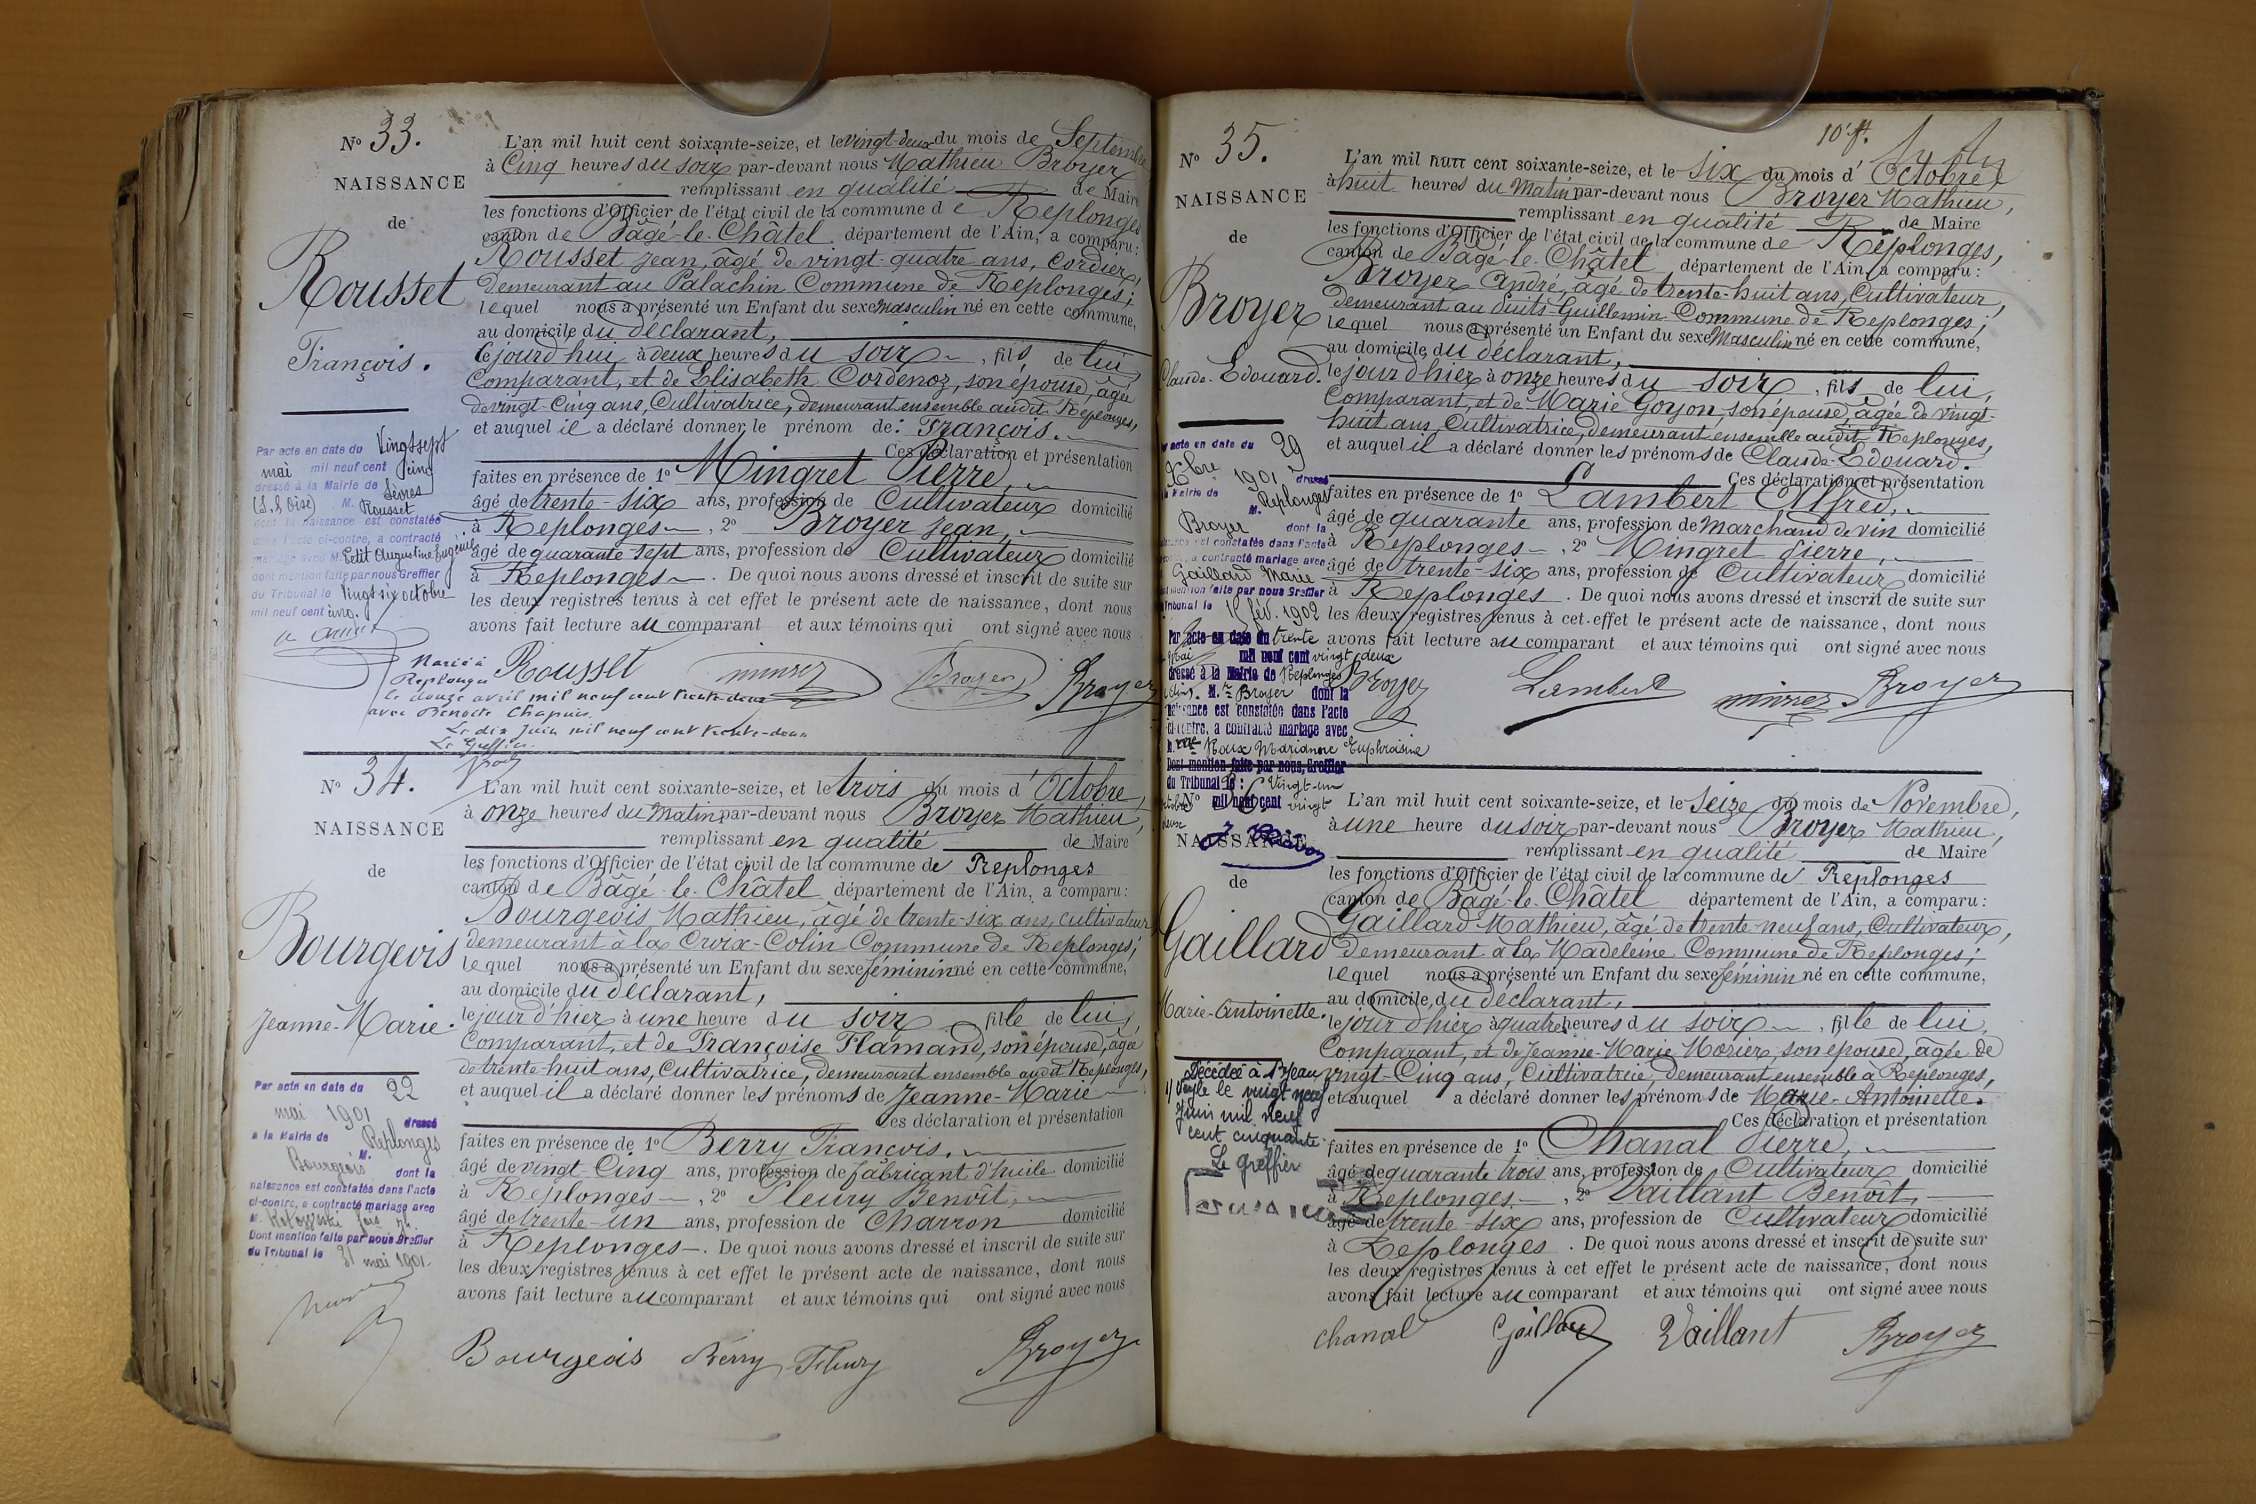 N° 33.
NAISSANCE
de
Rousset
François.
Par acte en date du Vingt sept
mai mil neuf cent cinq
dressé à la Mairie de Sèvres
(S. & Oise) M. Rousset
dont la naissance est constatée
dans l'acte ci-contre, a contracté
mariage avec M. Petit Augustine Eugénie
dont mention faite par nous Greffier
du Tribunal le Vingt six octobre
mil neuf cent cinq.
L'an mil huit cent soixante-seize, et le vingt-deux du mois de Septembre
à Cinq heures du soir par-devant nous Mathieu Broyer
remplissant en qualité de Maire
les fonctions d'Officier de l'état civil de la commune de Replonges
canton de Bâgé-le-Châtel département de l'Ain, a comparu:
Rousset Jean, âgé de vingt-quatre ans, Cordier,
demeurant au Palachin Commune de Replonges;
lequel nous a présenté un Enfant du sexe masculin né en cette commune,
au domicile du déclarant,
cejourd'hui à deux heures du soir, fils de lui
Comparant, et de Elisabeth Cordenoz, son épouse, âgée
de vingt-Cinq ans, Cultivatrice, demeurant ensemble audit Replonges,
et auquel il a déclaré donner le prénom de: François.
Ces déclaration et présentation
faites en présence de 1° Mingret Pierre,
âgé de trente-six ans, profession de Cultivateur domicilié
à Replonges, 2° Broyer Jean,
âgé de quarante sept ans, profession de Cultivateur domicilié
à Replonges. De quoi nous avons dressé et inscrit de suite sur
les deux registres tenus à cet effet le présent acte de naissance, dont nous
avons fait lecture au comparant et aux témoins qui ont signé avec nous
Rousset Broyer Broyer
Marié à
Replonges
le douze avril mil neuf cent trente-deux
avec Benoite Chapuis
Le dix Juin mil neuf cent trente-deux
Le Greffier
N° 34.
NAISSANCE
de
Bourgeois
Jeanne-Marie.
Par acte en date du 22
mai 1901 dressé
à la Mairie de Replonges
M. Bourgeois dont la
naissance est constatée dans l'acte
ci-contre, a contracté mariage avec
Dont mention faite par nous Greffier
du Tribunal le 31 mai 1901.
L'an mil huit cent soixante-seize, et le trois du mois d'Octobre,
à onze heures du Matin par-devant nous Broyer Mathieu,
remplissant en qualité de Maire
les fonctions d'Officier de l'état civil de la commune de Replonges
canton de Bâgé-le-Châtel département de l'Ain, a comparu:
Bourgeois Mathieu, âgé de trente-six ans, cultivateur
demeurant à la Croix-Colin Commune de Replonges;
lequel nous a présenté un Enfant du sexe féminin né en cette commune,
au domicile du déclarant,
le jour d'hier à une heure du soir fille de lui,
Comparant, et de Françoise Flamand, son épouse, âgée
de trente-huit ans, Cultivatrice, demeurant ensemble audit Replonges,
et auquel il a déclaré donner les prénoms de Jeanne-Marie
Ces déclaration et présentation
faites en présence de 1° Berry François,
âgé de vingt Cinq ans, profession de fabricant d'huile domicilié
à Replonges, 2° Fleury Benoît,
âgé de trente-un ans, profession de Charron domicilié
à Replonges. De quoi nous avons dressé et inscrit de suite sur
les deux registres tenus à cet effet le présent acte de naissance, dont nous
avons fait lecture au comparant et aux témoins qui ont signé avec nous
Bourgeois Berry Fleury Broyer
N° 35.
NAISSANCE
de
Broyer
Claude-Edouard.
Par acte en date du 29
Xbre 1901 dressé
à la Mairie de Replonges
M. Broyer dont la
naissance est constatée dans l'acte
ci-contre, a contracté mariage avec
Gaillard Marie
dont mention faite par nous Greffier
du Tribunal le 15 fév. 1902
Par acte en date du trente
mai mil neuf cent vingt deux
dressé à la Mairie de Replonges
M. Broyer dont la
naissance est constatée dans l'acte
ci-contre, a contracté mariage avec
Roux Marianne Euphraisine
Dont mention faite par nous, Greffier
du Tribunal le: Vingt-un
octobre mil neuf cent vingt
deux
10e ft.
L'an mil huit cent soixante-seize, et le six du mois d'Octobre,
à huit heures du Matin par-devant nous Broyer Mathieu,
remplissant en qualité de Maire
les fonctions d'Officier de l'état civil de la commune de Replonges,
canton de Bâgé-le-Châtel département de l'Ain, a comparu:
Broyer André, âgé de trente-huit ans, Cultivateur,
demeurant au Puits-Guillemin Commune de Replonges;
lequel nous a présenté un Enfant du sexe Masculin né en cette commune,
au domicile du déclarant,
le jour d'hier à onze heures du soir, fils de lui,
Comparant, et de Marie Goyon, son épouse, âgée de vingt-
huit ans, Cultivatrice, demeurant ensemble audit Replonges,
et auquel il a déclaré donner les prénoms de Claude-Edouard.
Ces déclaration et présentation
faites en présence de 1° Lambert Alfred,
âgé de quarante ans, profession de Marchand de vin domicilié
à Replonges, 2° Mingret Pierre,
âgé de trente-six ans, profession de Cultivateur domicilié
à Replonges. De quoi nous avons dressé et inscrit de suite sur
les deux registres tenus à cet effet le présent acte de naissance, dont nous
avons fait lecture au comparant et aux témoins qui ont signé avec nous
Broyer Lambert Broyer
N° 36
NAISSANCE
de
Gaillard
Marie-Antoinette.
Décédée à St Jean
s/ Veyle le vingt neuf
Juin mil neuf
cent cinquante
Le greffier
L'an mil huit cent soixante-seize, et le Seize du mois de Novembre,
à une heure du soir par-devant nous Broyer Mathieu,
remplissant en qualité de Maire
les fonctions d'Officier de l'état civil de la commune de Replonges
canton de Bâgé-le-Châtel département de l'Ain, a comparu:
Gaillard Mathieu, âgé de trente-neuf ans, Cultivateur,
demeurant à la Madeleine Commune de Replonges;
lequel nous a présenté un Enfant du sexe féminin né en cette commune,
au domicile du déclarant,
le jour d'hier à quatre heures du soir, fille de lui,
Comparant, et de Jeanne-Marie Morier, son épouse, âgée de
vingt-Cinq ans, Cultivatrice, demeurant ensemble à Replonges,
et auquel a déclaré donner les prénoms de Marie-Antoinette.
Ces déclaration et présentation
faites en présence de 1° Chanal Pierre,
âgé de quarante trois ans, profession de Cultivateur domicilié
à Replonges, 2° Vaillant Benoît,
âgé de trente-six ans, profession de Cultivateur domicilié
à Replonges. De quoi nous avons dressé et inscrit de suite sur
les deux registres tenus à cet effet le présent acte de naissance, dont nous
avons fait lecture au comparant et aux témoins qui ont signé avec nous
chanal Gaillard Vaillant Broyer